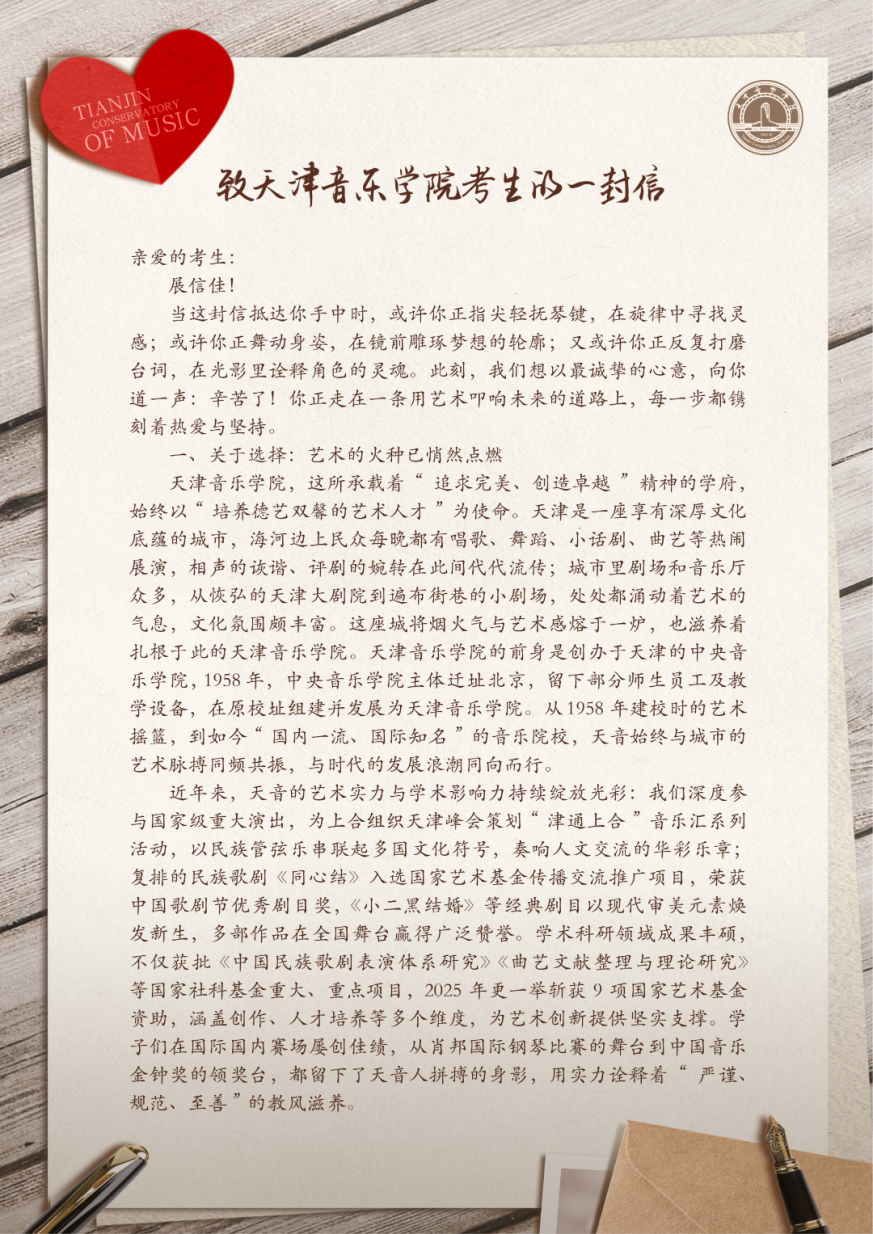 TIANJIN
CONSERVATORY
OF MUSIC
致天津音乐学院考生的一封信
亲爱的考生：
展信佳！
当这封信抵达你手中时，或许你正指尖轻抚琴键，在旋律中寻找灵
感；或许你正舞动身姿，在镜前雕琢梦想的轮廓；又或许你正反复打磨
台词，在光影里诠释角色的灵魂。此刻，我们想以最诚挚的心意，向你
道一声：辛苦了！你正走在一条用艺术叩响未来的道路上，每一步都镌
刻着热爱与坚持。
一、关于选择：艺术的火种已悄然点燃
天津音乐学院，这所承载着“ 追求完美、创造卓越 ”精神的学府，
始终以“ 培养德艺双馨的艺术人才 ”为使命。天津是一座享有深厚文化
底蕴的城市，海河边上民众每晚都有唱歌、舞蹈、小话剧、曲艺等热闹
展演，相声的诙谐、评剧的婉转在此间代代流传；城市里剧场和音乐厅
众多，从恢弘的天津大剧院到遍布街巷的小剧场，处处都涌动着艺术的
气息，文化氛围颇丰富。这座城将烟火气与艺术感熔于一炉，也滋养着
扎根于此的天津音乐学院。天津音乐学院的前身是创办于天津的中央音
乐学院，1958 年，中央音乐学院主体迁址北京，留下部分师生员工及教
学设备，在原校址组建并发展为天津音乐学院。从1958 年建校时的艺术
摇篮，到如今“ 国内一流、国际知名 ”的音乐院校，天音始终与城市的
艺术脉搏同频共振，与时代的发展浪潮同向而行。
近年来，天音的艺术实力与学术影响力持续绽放光彩：我们深度参
与国家级重大演出，为上合组织天津峰会策划“ 津通上合 ”音乐汇系列
活动，以民族管弦乐串联起多国文化符号，奏响人文交流的华彩乐章；
复排的民族歌剧《同心结》入选国家艺术基金传播交流推广项目，荣获
中国歌剧节优秀剧目奖，《小二黑结婚》等经典剧目以现代审美元素焕
发新生，多部作品在全国舞台赢得广泛赞誉。学术科研领域成果丰硕，
不仅获批《中国民族歌剧表演体系研究》《曲艺文献整理与理论研究》
等国家社科基金重大、重点项目，2025 年更一举斩获 9 项国家艺术基金
资助，涵盖创作、人才培养等多个维度，为艺术创新提供坚实支撑。学
子们在国际国内赛场屡创佳绩，从肖邦国际钢琴比赛的舞台到中国音乐
金钟奖的领奖台，都留下了天音人拼搏的身影，用实力诠释着“ 严谨、
规范、至善”的教风滋养。